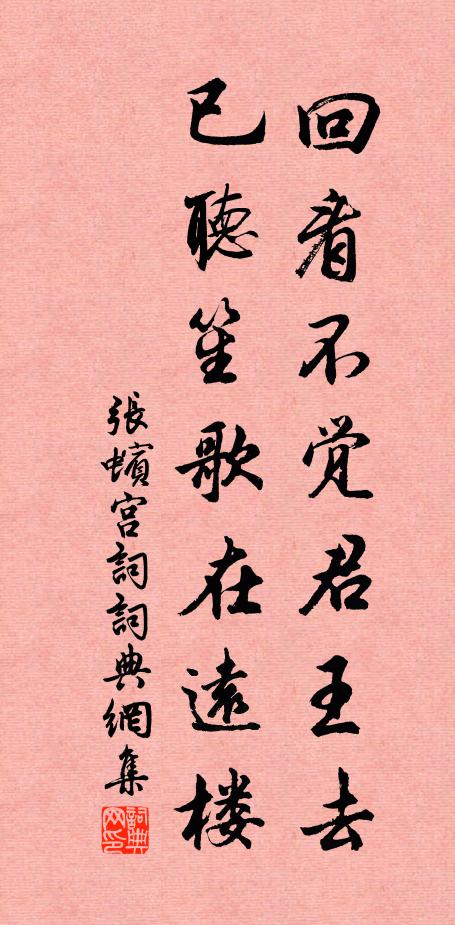 回看不觉君王去
已聽笙歌在遠楼
張蠙宫詞詞典網集
詞典网印